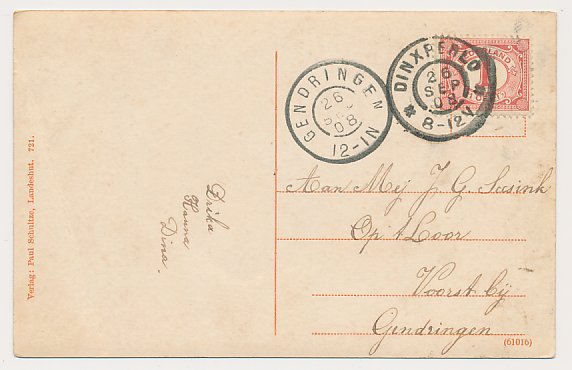 GENDRINGEN
26 SEP 08
12-1N
DINXPERLO
26 SEP 08
8-12V
Aan Mej J G Seesink
Op 't Loor
Voorst bij
Gendringen
(61016)
Drika
Hanna
Dina.
Verlag: Paul Schultze, Landeshut. 721.